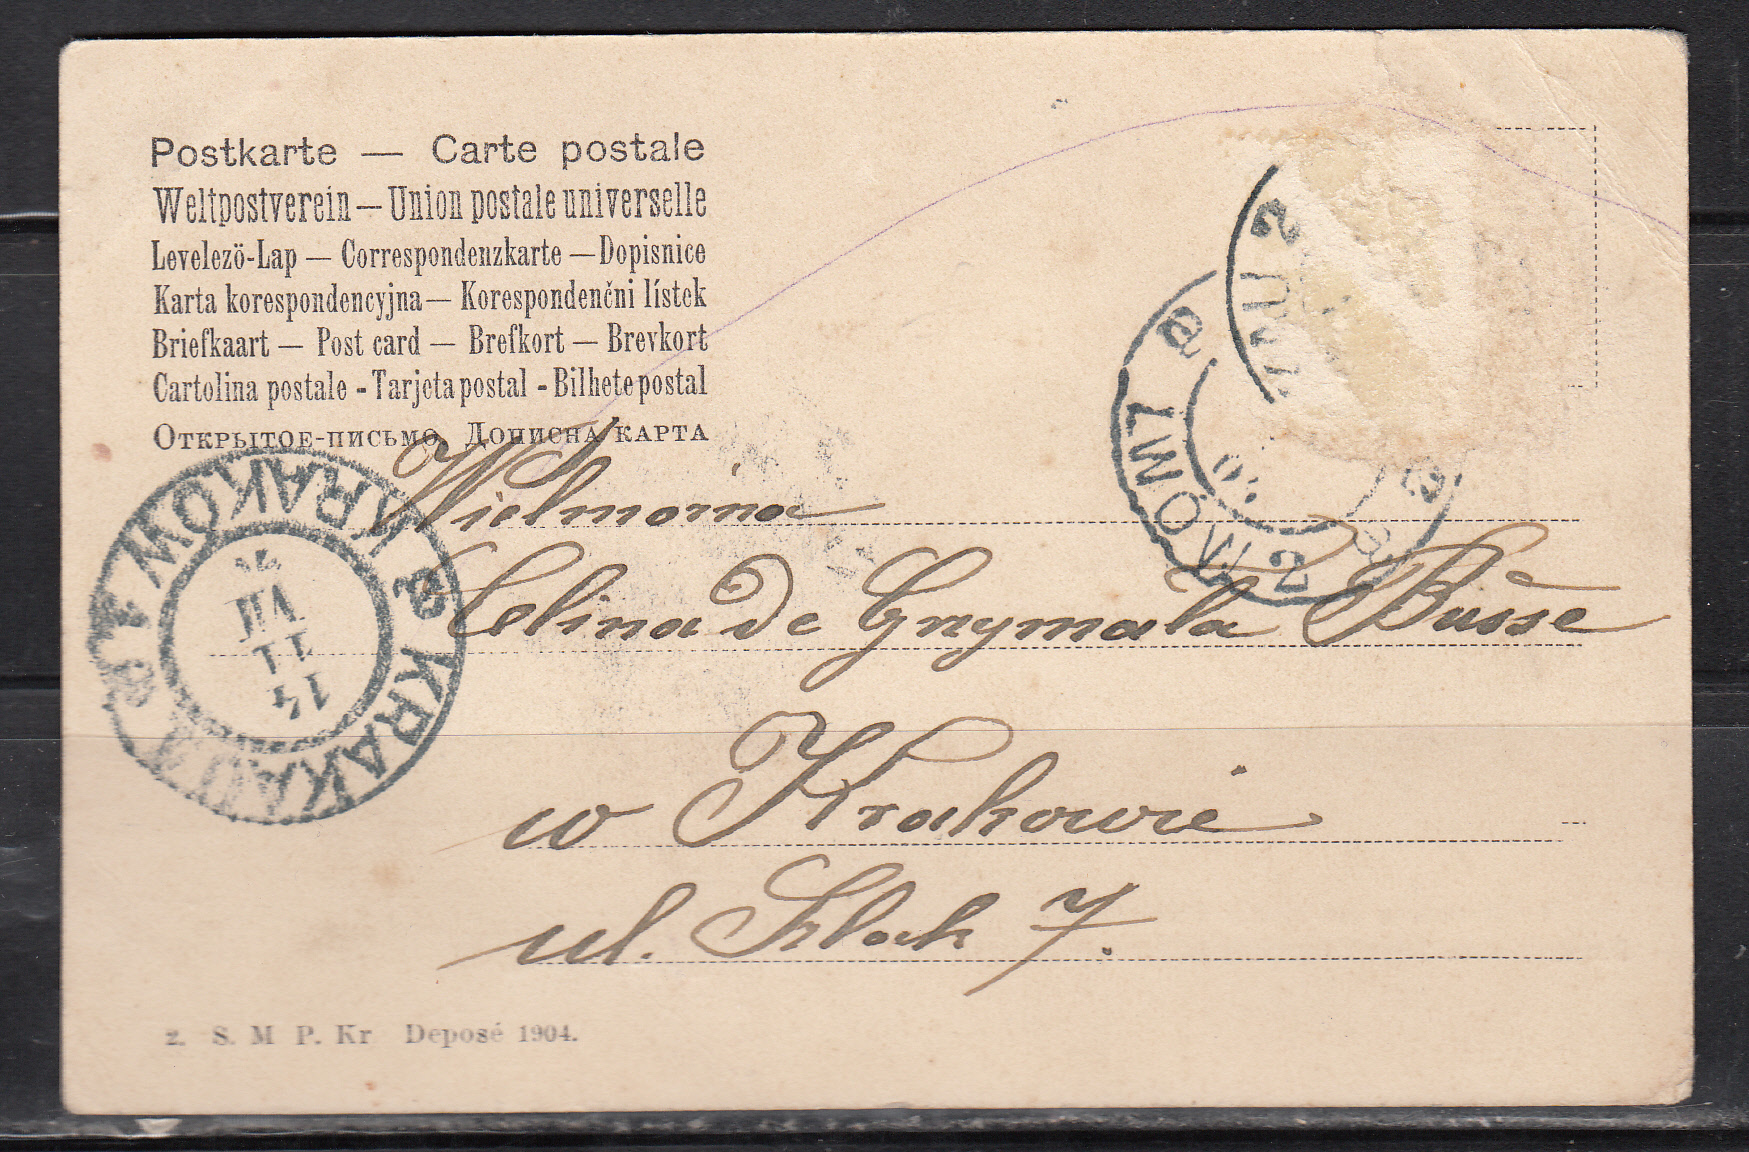 Postkarte — Carte postale
Weltpostverein — Union postale universelle
Levelezö-Lap — Correspondenzkarte — Dopisnice
Karta korespondencyjna — Korespondenčni lístek
Briefkaart — Post card — Brefkort — Brevkort
Cartolina postale - Tarjeta postal - Bilhete postal
Открытое-письмо, Дописна карта
Wielmożna
Celina de Grzymała Busse
w Krakowie
ul. Szlak 7.
KRAKAU KRAKÓW
14
11
VII
LWÓW 2
z. S. M P. Kr Deposé 1904.